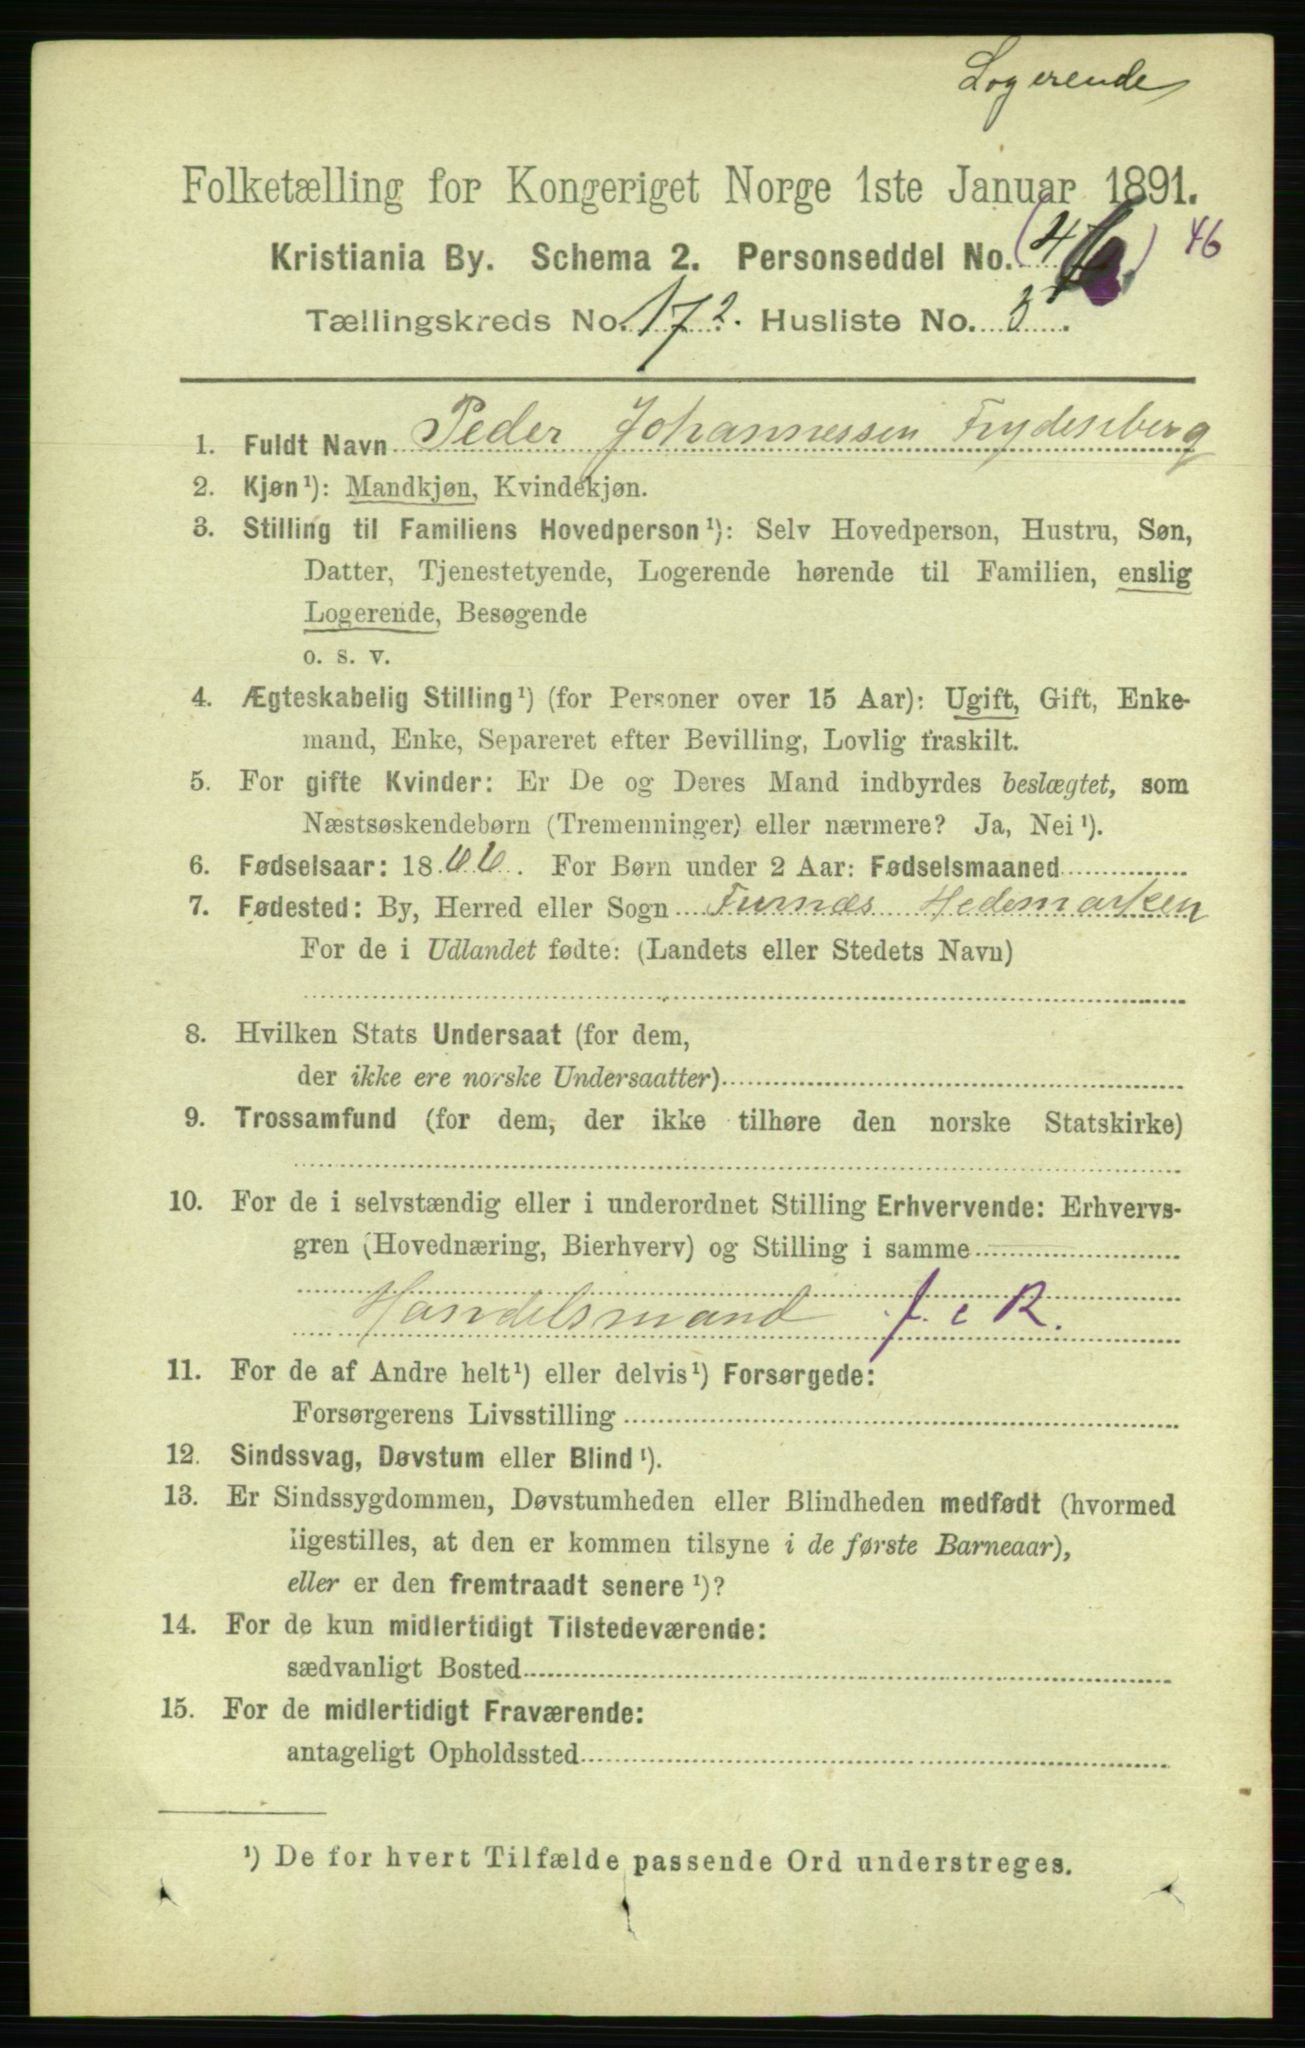 Logerende
Folketælling for Kongeriget Norge 1ste Januar 1891.
Kristiania By. Schema 2. Personseddel No. ) 46
Tællingskreds No. 172. Husliste No. 3.
1. Fuldt Navn Peder Johannessen Frydenberg
2. Kjøn¹): Mandkjøn, Kvindekjøn.
3. Stilling til Familiens Hovedperson¹): Selv Hovedperson, Hustru, Søn,
Datter, Tjenestetyende, Logerende hørende til Familien, enslig
Logerende, Besøgende
o. s. v.
4. Ægteskabelig Stilling¹) (for Personer over 15 Aar): Ugift, Gift, Enke-
mand, Enke, Separeret efter Bevilling, Lovlig fraskilt.
5. For gifte Kvinder: Er De og Deres Mand indbyrdes beslægtet, som
Næstsøskendebørn (Tremenninger) eller nærmere? Ja, Nei¹).
6. Fødselsaar: 1866. For Børn under 2 Aar: Fødselsmaaned
7. Fødested: By, Herred eller Sogn Furnæs Hedemarken
For de i Udlandet fødte: (Landets eller Stedets Navn)
8. Hvilken Stats Undersaat (for dem,
der ikke ere norske Undersaatter)
9. Trossamfund (for dem, der ikke tilhøre den norske Statskirke)
10. For de i selvstændig eller i underordnet Stilling Erhvervende: Erhvervs-
gren (Hovednæring, Bierhverv) og Stilling i samme
Handelsmand f. e R.
11. For de af Andre helt¹) eller delvis¹) Forsørgede:
Forsørgerens Livsstilling
12. Sindssvag, Døvstum eller Blind¹).
13. Er Sindssygdommen, Døvstumheden eller Blindheden medfødt (hvormed
ligestilles, at den er kommen tilsyne i de første Barneaar),
eller er den fremtraadt senere¹)?
14. For de kun midlertidigt Tilstedeværende:
sædvanligt Bosted
15. For de midlertidigt Fraværende:
antageligt Opholdssted
¹) De for hvert Tilfælde passende Ord understreges.